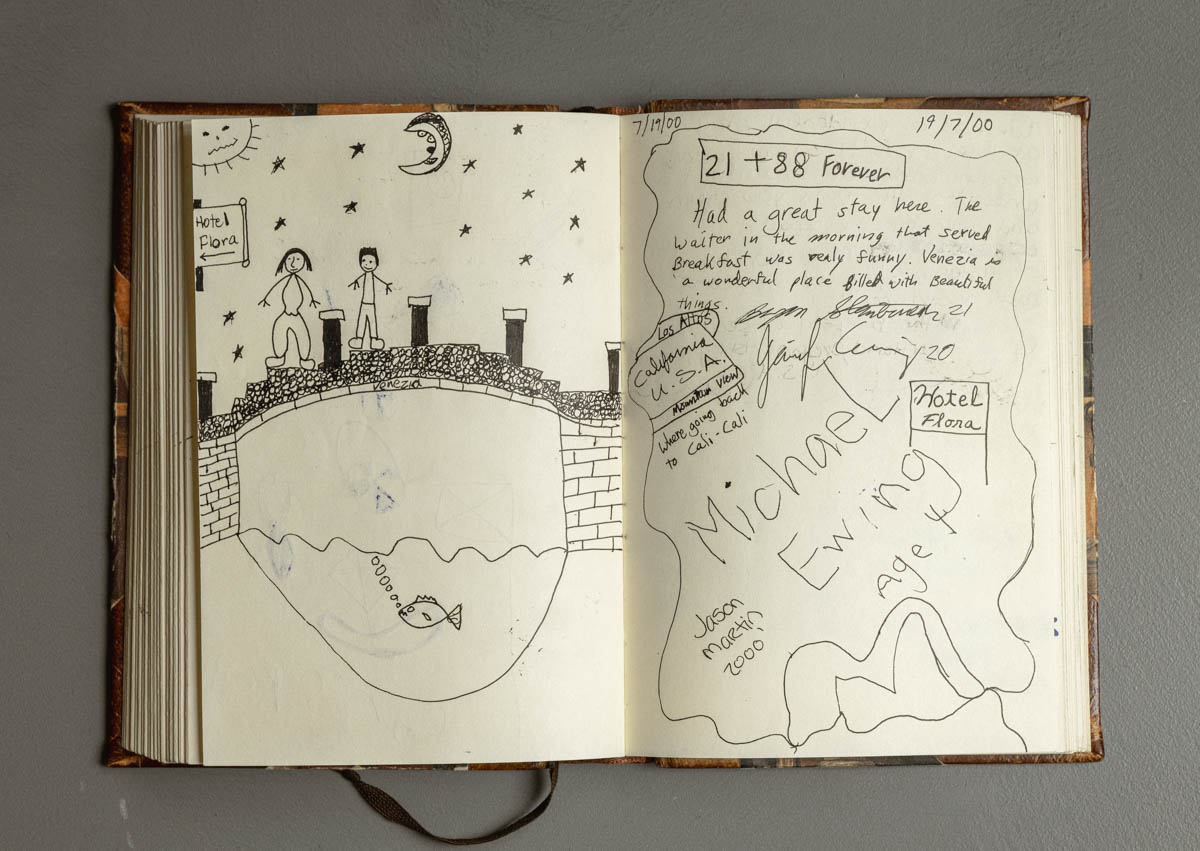 Hotel
Flora
Venezia
7/19/00
19/7/00
21 + 88 Forever
Had a great stay here. The
waiter in the morning that served
Breakfast was realy funny. Venezia is
a wonderful place filled with Beautiful
things.
21
20
Los Altos
California
U.S.A.
Mountain View
Where going back
to Cali-Cali
Hotel
Flora
Michael
Ewing
Age
Jason
Martin
2000